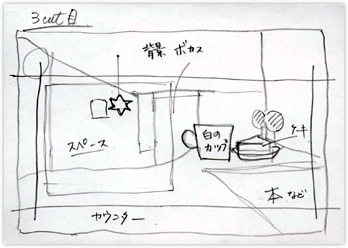 3cut目
背景 ボカス
白の
カップ
ケーキ
スペース
本 など
カウンター